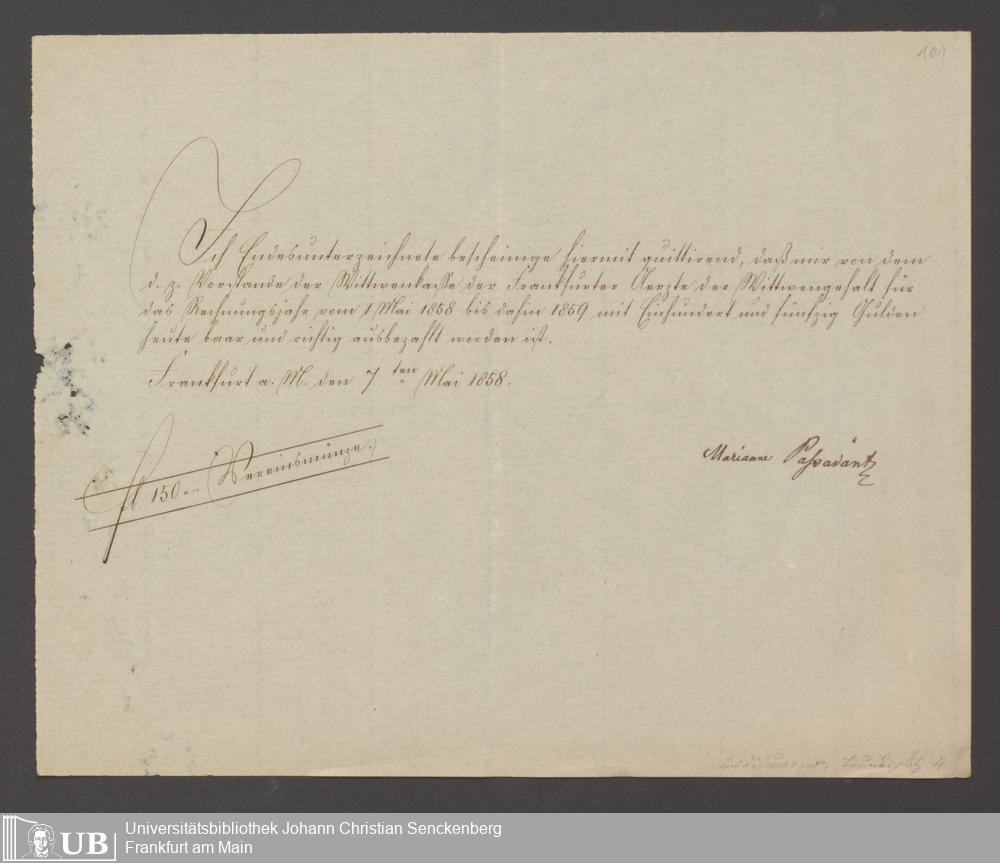 101
Ich Endesunterzeichnete bescheinige hiermit quittirend, daß mir von dem
d. z. Vorstande der Wittwenkasse der Frankfurter Aerzte der Wittwengehalt für
das Rechnungsjahr vom 1 Mai 1858 bis dahin 1859 mit Einhundert und fünfzig Gulden
heute baar und richtig ausbezahlt worden ist.
Frankfurt a. M. den 7ten Mai 1858.
Marianne Passavant
fl. 150 Vereinsmünze.
4
UB
Universitätsbibliothek Johann Christian Senckenberg
Frankfurt am Main